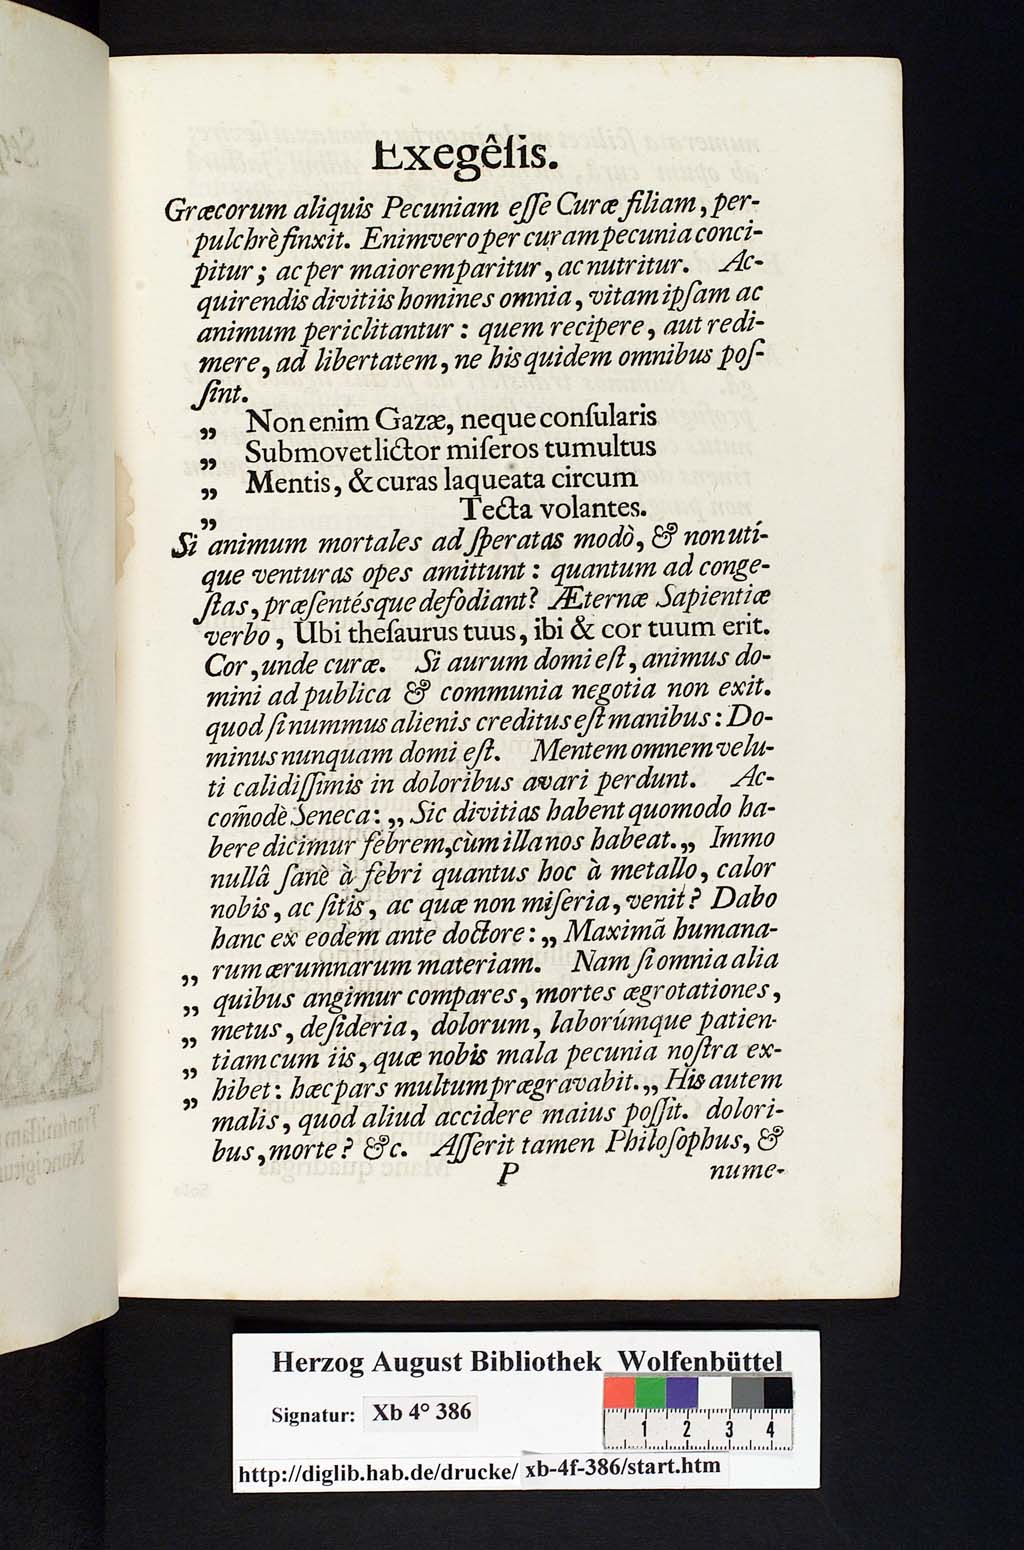 Exegêsis.
Græcorum aliquis Pecuniam eſſe Curæ filiam, per-
pulchrè finxit. Enimvero per curam pecunia conci-
pitur; ac per maiorem paritur, ac nutritur. Ac-
quirendis divitiis homines omnia, vitam ipſam ac
animum periclitantur: quem recipere, aut redi-
mere, ad libertatem, ne his quidem omnibus poſ-
ſint.
„ Non enim Gazæ, neque conſularis
„ Submovet lictor miſeros tumultus
„ Mentis, & curas laqueata circum
„ Tecta volantes.
Si animum mortales ad ſperatas modò, & non uti-
que venturas opes amittunt: quantum ad conge-
ſtas, præſentésque defodiant? Æternæ Sapientiæ
verbo, Ubi theſaurus tuus, ibi & cor tuum erit.
Cor, unde curæ. Si aurum domi eſt, animus do-
mini ad publica & communia negotia non exit.
quod ſi nummus alienis creditus eſt manibus: Do-
minus nunquam domi eſt. Mentem omnem velu-
ti calidiſſimis in doloribus avari perdunt. Ac-
com̃odè Seneca: „ Sic divitias habent quomodo ha-
bere dicimur febrem, cùm illa nos habeat. „ Immo
nullâ ſanè à febri quantus hoc à metallo, calor
nobis, ac ſitis, ac quæ non miſeria, venit? Dabo
hanc ex eodem ante doctore: „ Maximã humana-
„ rum ærumnarum materiam. Nam ſi omnia alia
„ quibus angimur compares, mortes ægrotationes,
„ metus, deſideria, dolorum, laborúmque patien-
„ tiam cum iis, quæ nobis mala pecunia noſtra ex-
„ hibet: hæc pars multum prægravabit. „ His autem
malis, quod aliud accidere maius poſſit. dolori-
bus, morte? &c. Aſſerit tamen Philoſophus, &
P nume-
Herzog August Bibliothek Wolfenbüttel
Signatur: Xb 4° 386
1 2 3 4
http://diglib.hab.de/drucke/ xb-4f-386/start.htm